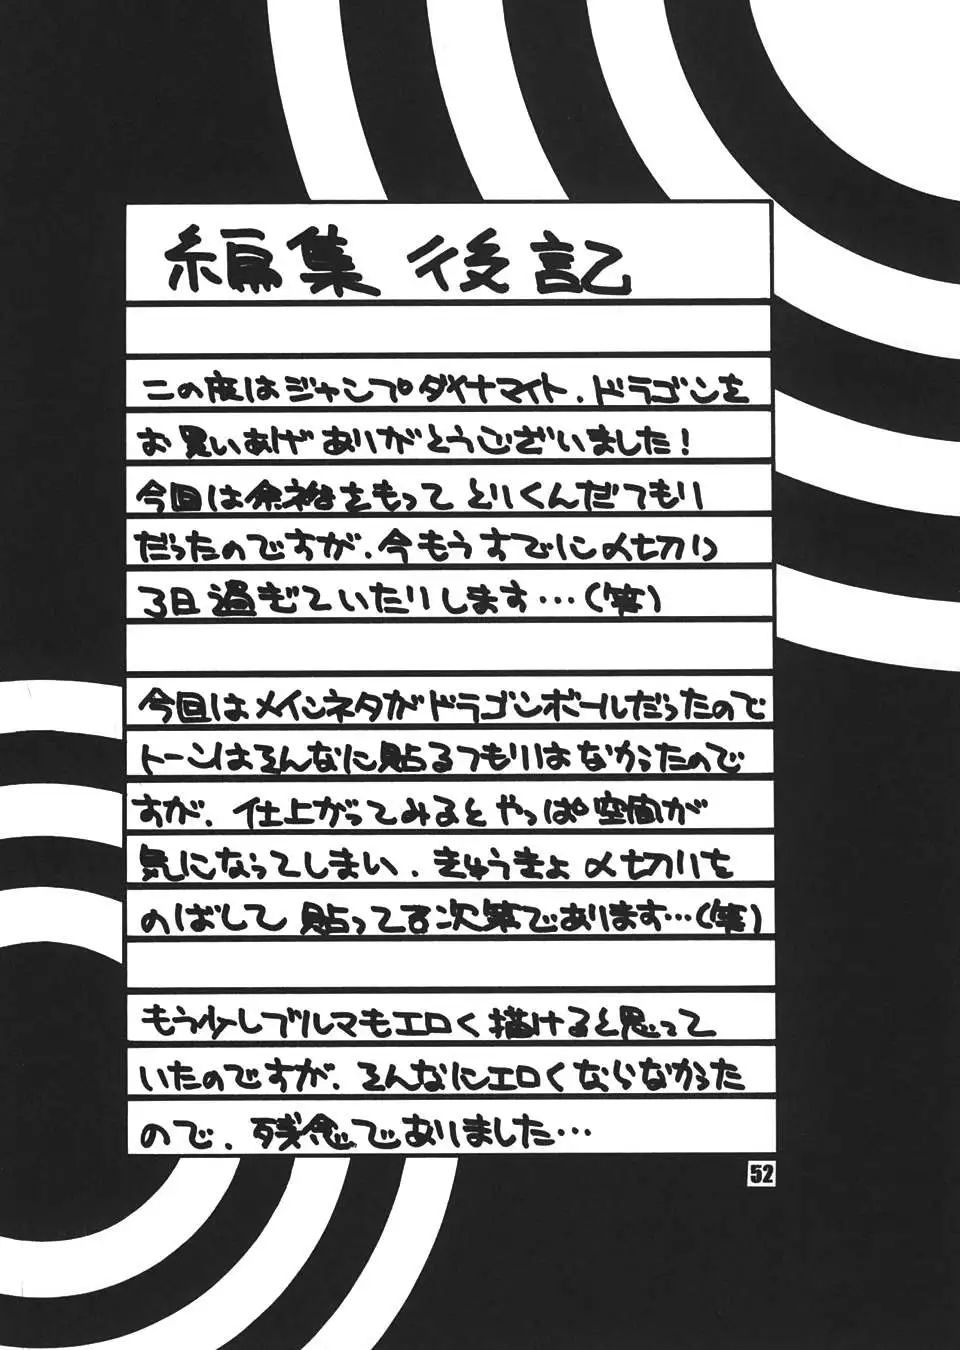 編集後記
この度はジャンプダイナマイト、ドラゴンを
お買いあげありがとうございました！
今回は余裕をもってとりくんだつもり
だったのですが、今もうすでに〆切り
3日過ぎていたりします…(笑)
今回はメインネタがドラゴンボールだったので
トーンはそんなに貼るつもりはなかったので
すが、仕上がってみるとやっぱ空間が
気になってしまい、きゅうきょ〆切りを
のばして貼ってる次第であります…(笑)
もう少しブルマもエロく描けると思って
いたのですが、そんなにエロくならなかった
ので、残念でありました…
52